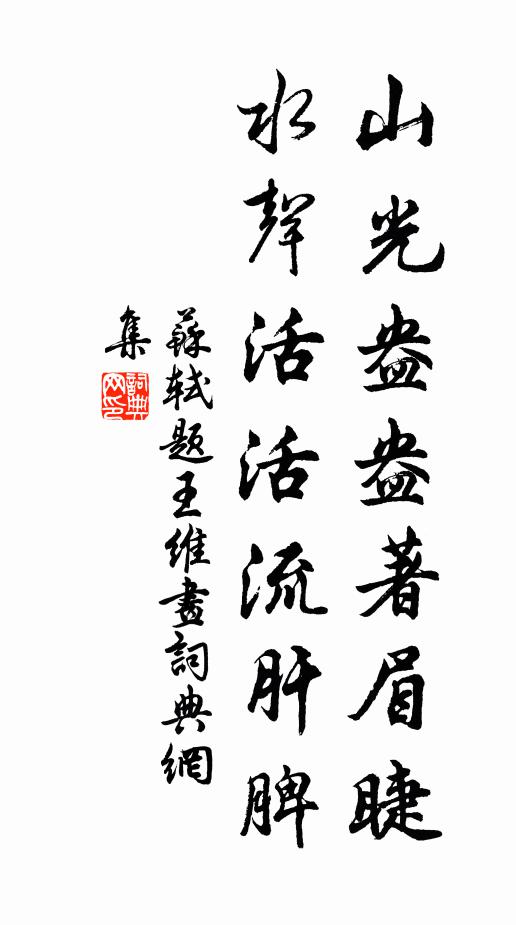 山光盎盎著眉睫
水聲活活流肝脾
蘇軾题王維畫詞典網
集
詞典
网印